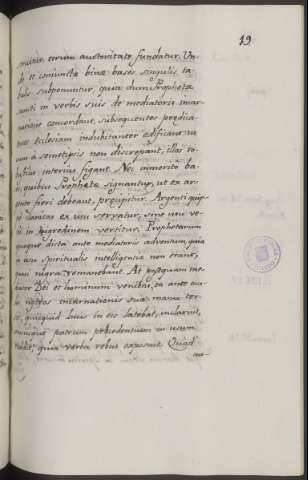 19
eorum auctoritate fundatur. Un-
de et coniunctæ binæ bases, singulis ta-
bulis subponuntur, quia dum Prophetæ
sancti in verbis suis de mediatoris incar-
natione concordant, subsequentes prædica-
tores Eclesiam indubitanter edificant: cu
um à semetipsis non discrepant, illas ro-
bustius in figant. Nec immeritò ba-
quibus Prophetæ signantur, ut ex ar-
gento fieri debeant, præcipitur. Argenti quip-
pe claritas ex usu servatur, sine usu ve-
rò in nigredinem vertitur. Prophetarum
quoque dicta ante mediatoris adventum, quia
in usu spiritualis intelligentiæ non erant,
quasi nigra remanebant. At postquam me-
diator Dei et hominum veniens, ea ante ocu-
nostros incarnationis suæ manu ter-
sit, quicquid lucis in eis latebat, inclaruit,
patrum præcedentium in usum
dedit, quia verba rebus exposuit. Quod